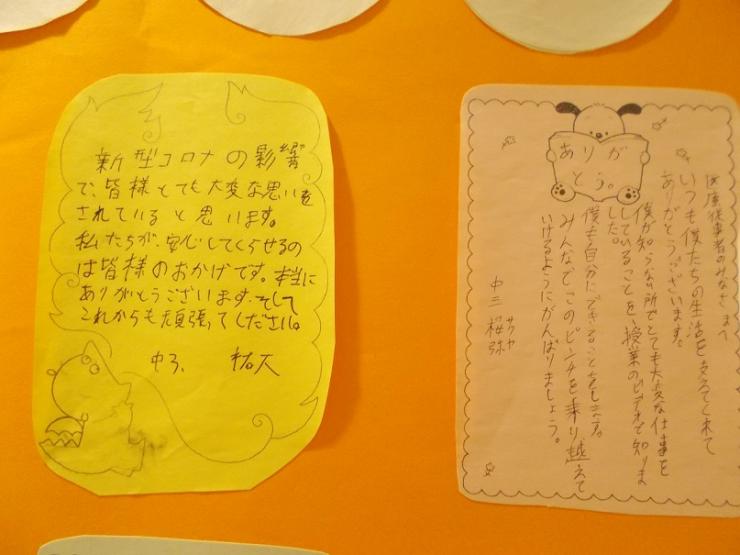 新型コロナの影響
で、皆様とても大変な思いを
されていると思います。
私たちが、安心してくらせるの
は皆様のおかげです。本当に
ありがとうございます。そして
これからも頑張ってください。
中3、 祐大
ありが
とう。
医療従事者のみなさまへ
いつも僕たちの生活を支えてくれて
ありがとうございます。
僕が知らない所でとても大変な仕事を
していることを、授業のビデオで知りま
した。
僕も自分にできることをします。
みんなでこのピンチを乗り越えて
いけるようにがんばりましょう。
中三 桜弥
サクヤ